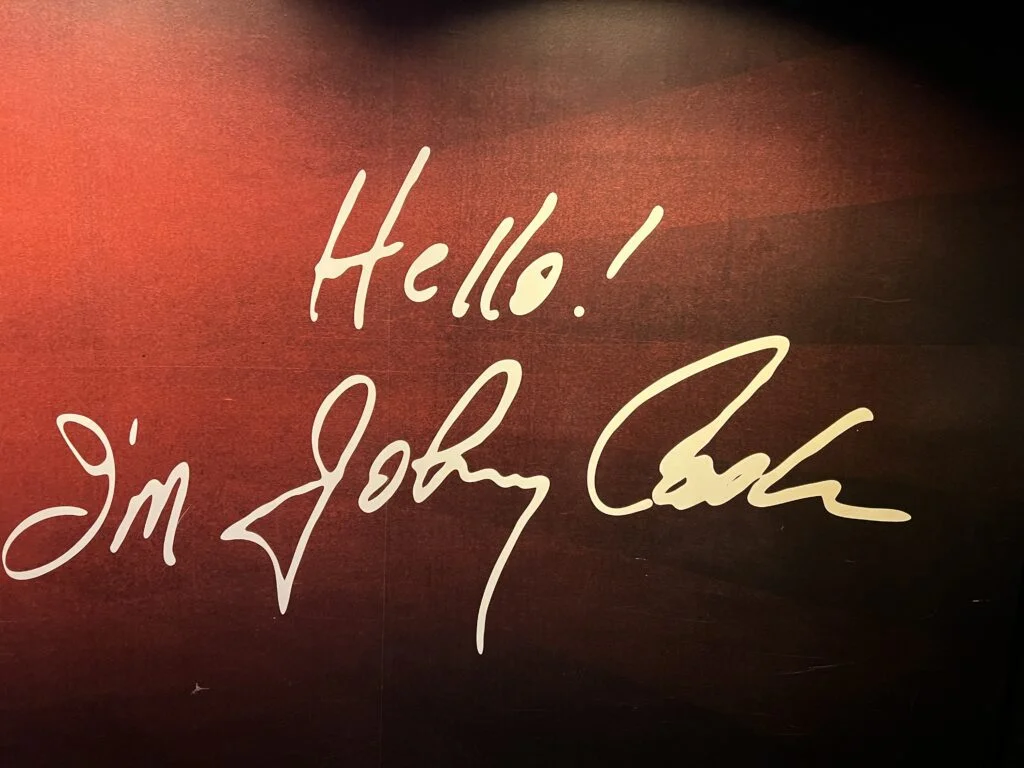 Hello!
I'm Johny Cash